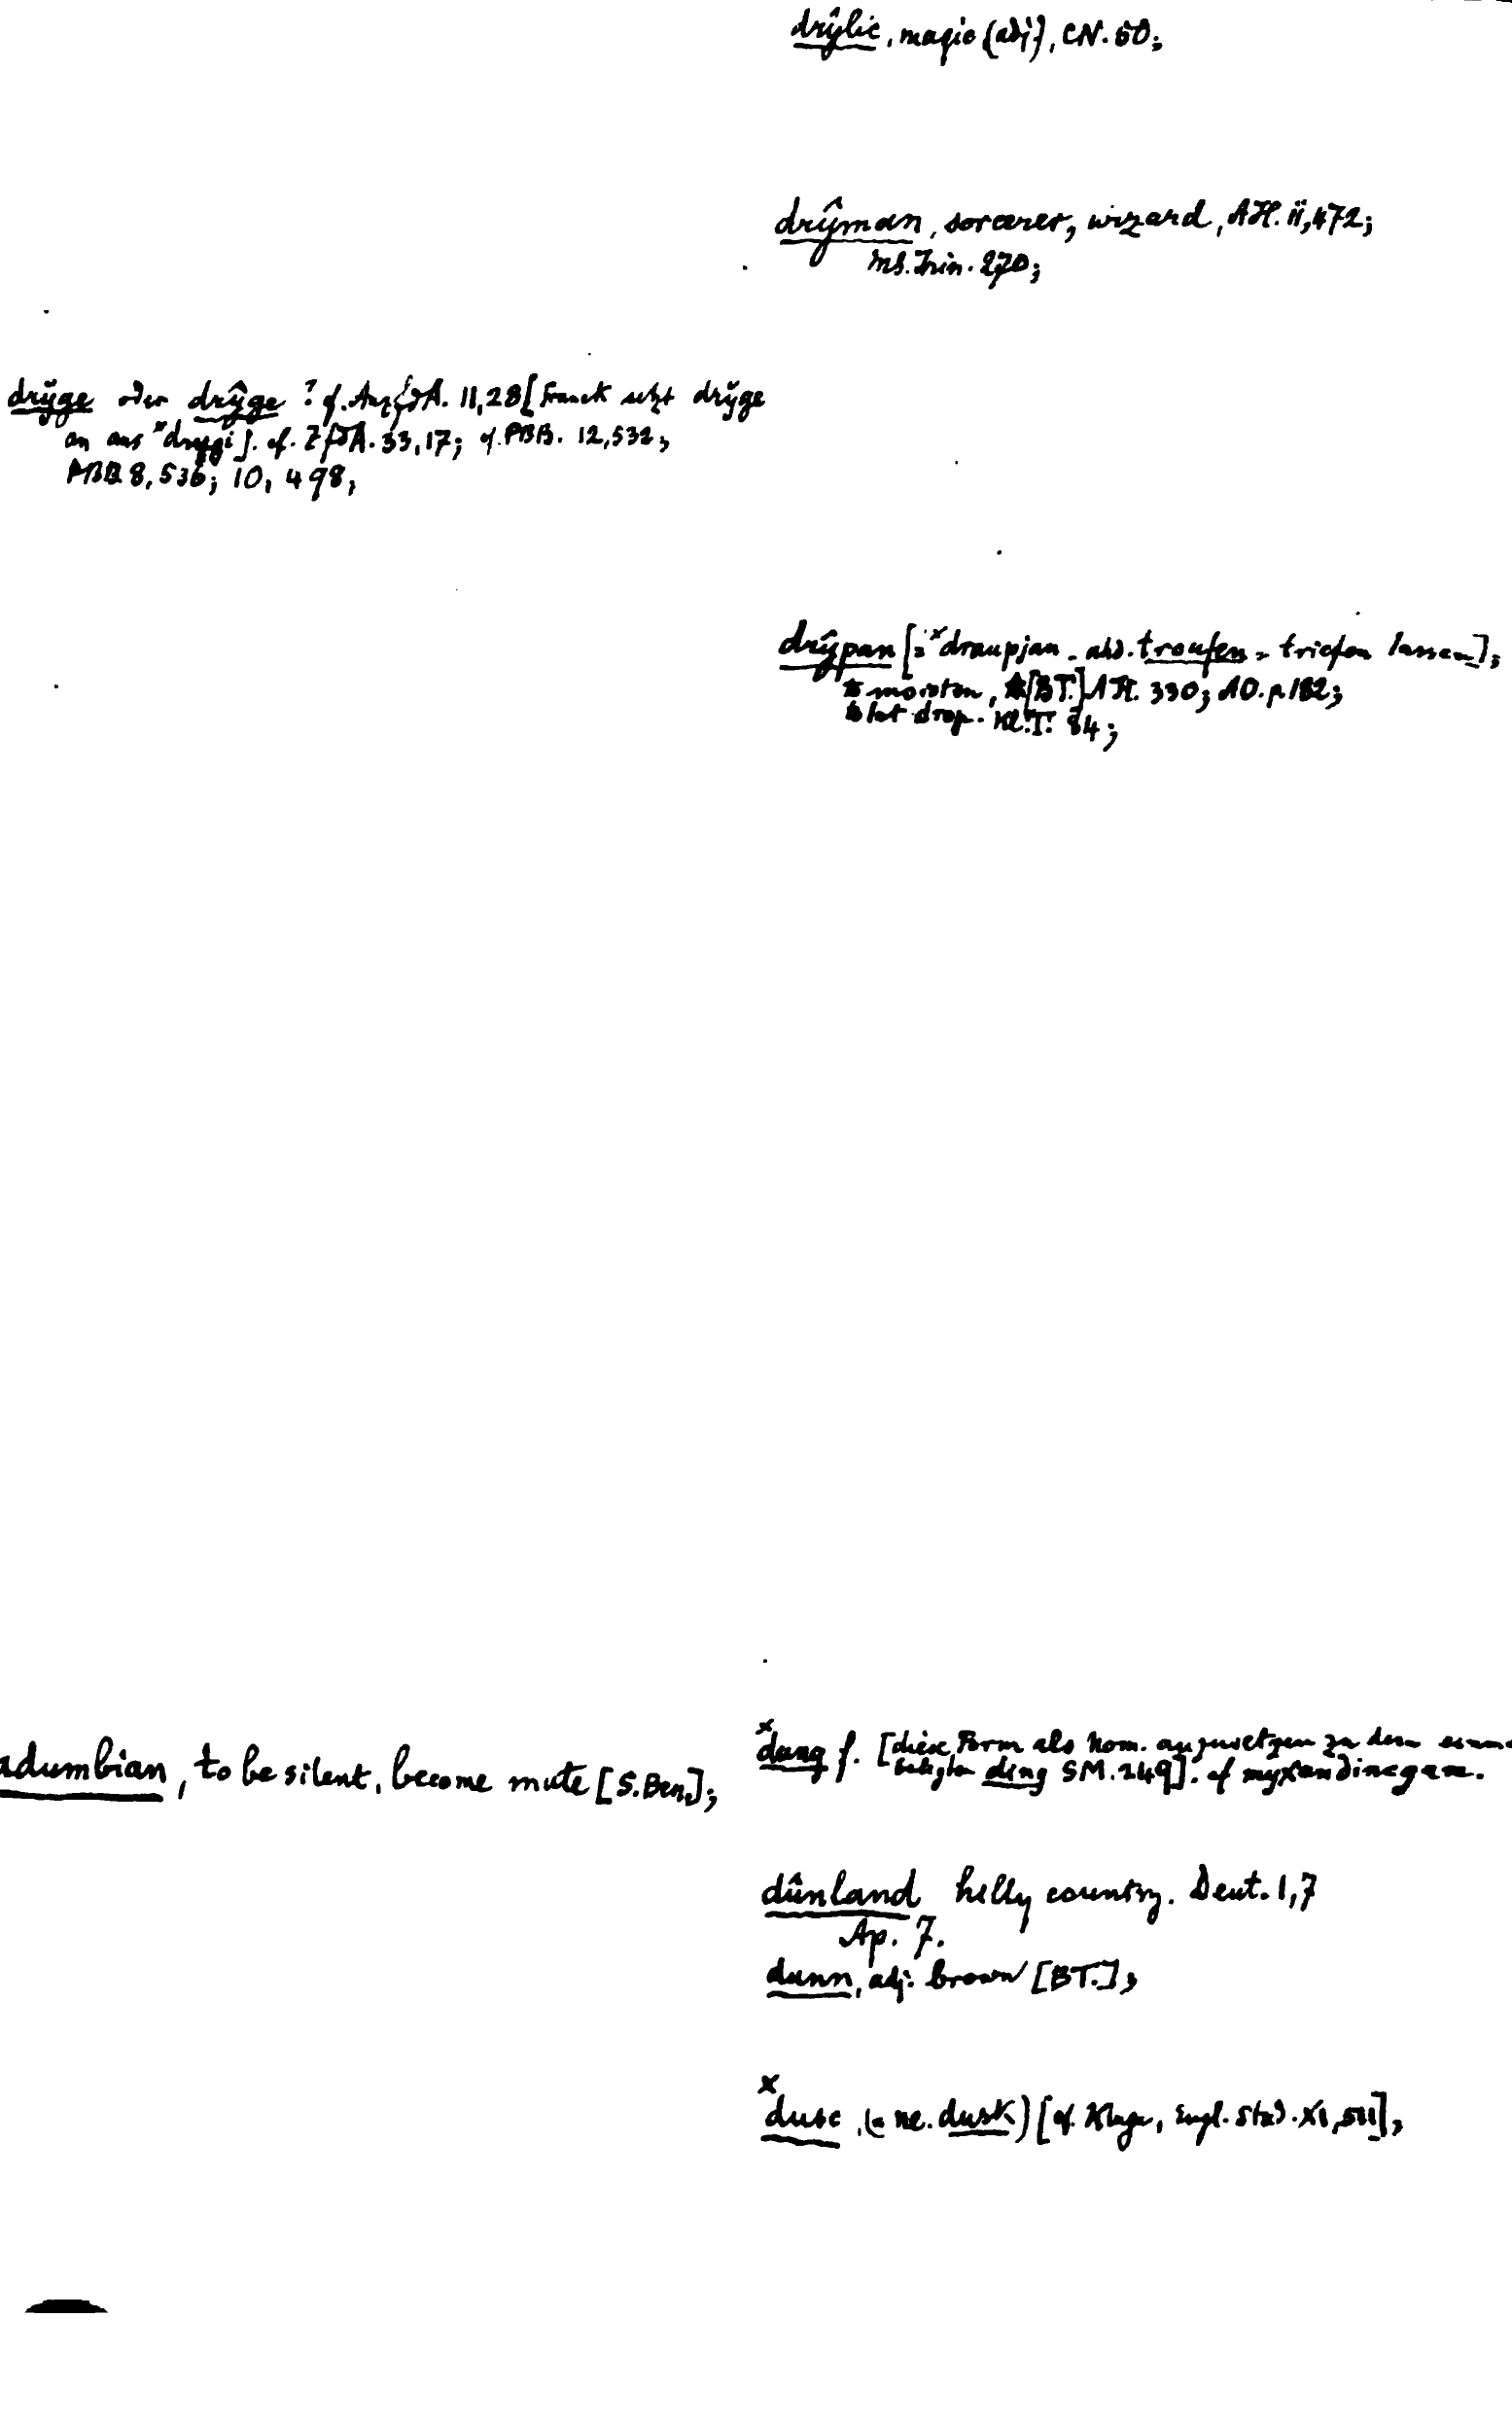 drŷlic, magic (adj), CN. 50;
drŷman, sorcerer, wizard, AH. ii, 472;
MS. Trin. 270;
drўge oder drŷge? cf. AnzfdA. 11,28 [Franck setzt drўge
an aus *druggi]. cf. ZfdA. 33,17; cf. PBB. 12,532;
PBB 8,536; 10, 498;
drŷpan [= *draupjan - ahd. troufen = triefen lassen];
to moisten, [BT.] AH. 330; AO. p. 182;
to let drop. 84;
adumbian, to be silent, become mute [S. Ben.];
×dung f. [diese Form als Nom. anzusetzen zu dem
ding SM. 249]. cf
dûnland hilly country. Deut. 1,7
Ap. 7.
dunn, adj. brown [BT.];
×dusc, (= ne. dusk) [cf. Kluge, Engl. Stud. XI, 511],